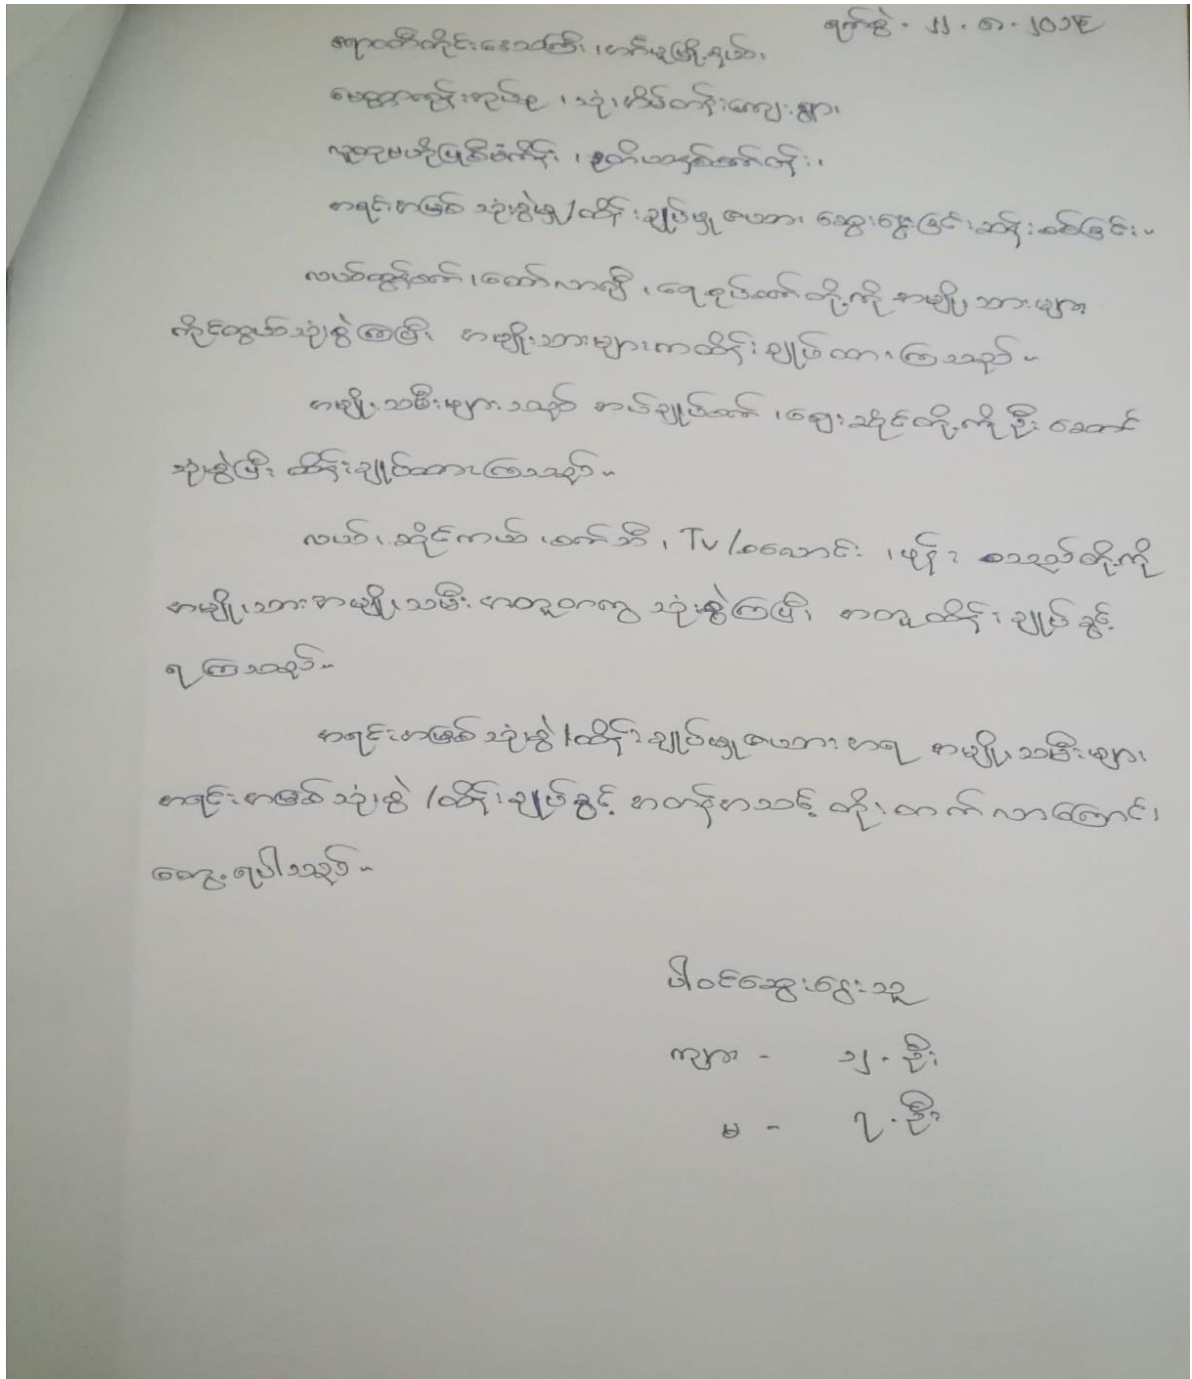 ရက်စွဲ - ၂၂ . ၈ . ၂၀၁၄
ဧရာဝတီတိုင်းဒေသကြီး ၊ ဟင်္သာမြို့နယ်၊
အုပ်စု ၊ သုံးအိမ်တန်းကျေးရွာ၊
လူထုဗဟိုပြုစီမံကိန်း ၊ ဒုတိယနှစ်စက်ဝန်း ၊
အရင်းအမြစ် သုံးစွဲမှု/ထိန်းချုပ်မှု ဇယား ဆွေးနွေးခြင်း ဆန်းစစ်ခြင်း။
လယ်ထွန်စက် ၊ ထော်လာဂျီ ၊ ရေစုပ်စက် တို့ကို အမျိုးသားများ
ကိုင်တွယ်သုံးစွဲကြပြီး အမျိုးသားများကထိန်းချုပ်ထားကြသည်။
အမျိုးသမီးများသည် စက်ချုပ်စက် ၊ ဈေးဆိုင်တို့ကို ဦးဆောင်
သုံးစွဲပြီး ထိန်းချုပ်ထားကြသည်။
လယ် ၊ ဆိုင်ကယ် ၊ စက်ဘီး ၊ TV /စလောင်း ၊ ဖုန်း စသည်တို့ကို
အမျိုးသားအမျိုးသမီး အတူတကွ သုံးစွဲကြပြီး အတူထိန်းချုပ်ခွင့်
ရကြသည်။
အရင်းအမြစ် သုံးစွဲ /ထိန်းချုပ်မှုဇယားအရ အမျိုးသမီးများ
အရင်းအမြစ်သုံးစွဲ /ထိန်းချုပ်ခွင့် အတန်အသင့် တိုးတက်လာကြောင်း
တွေ့ရပါသည်။
ပါဝင်ဆွေးနွေးသူ
ကျား - ၁၂ . ဦး
မ - ၇ . ဦး